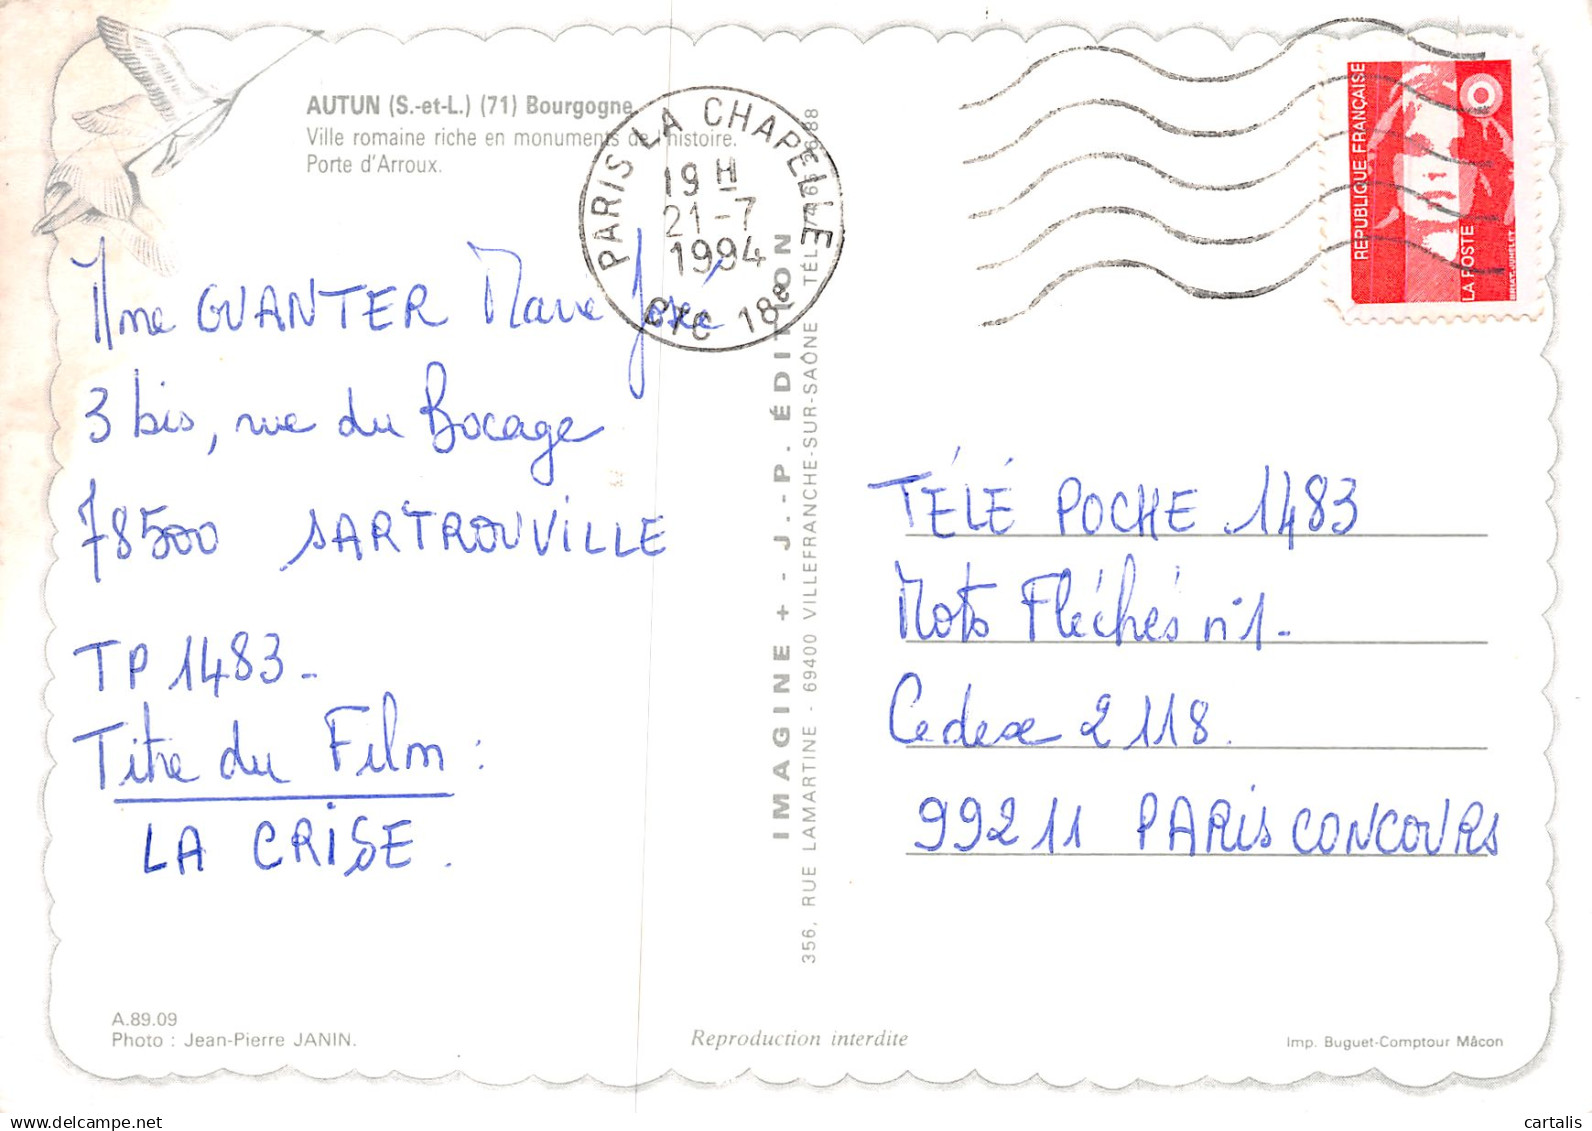 AUTUN (S.-et-L.) (71) Bourgogne
Ville romaine riche en monuments de l'histoire.
Porte d'Arroux.
PARIS LA CHAPELLE
19 H
21-7
1994
18e
RÉPUBLIQUE FRANÇAISE
LA POSTE
Mme GUANTER Marie José
3 bis, rue du Bocage
78500 SARTROUVILLE
TP 1483-
Titre du Film :
LA CRISE.
IMAGINE + - J.-P. ÉDITION
356, RUE LAMARTINE - 69400 VILLEFRANCHE-SUR-SAÔNE TÉL.
TÉLÉ POCHE 1483
Mots Fléchés n°1-
Cedex 2118.
99211 PARIS CONCOURS
A.89.09
Photo : Jean-Pierre JANIN.
Reproduction interdite
Imp. Buguet-Comptour Mâcon
cartalis